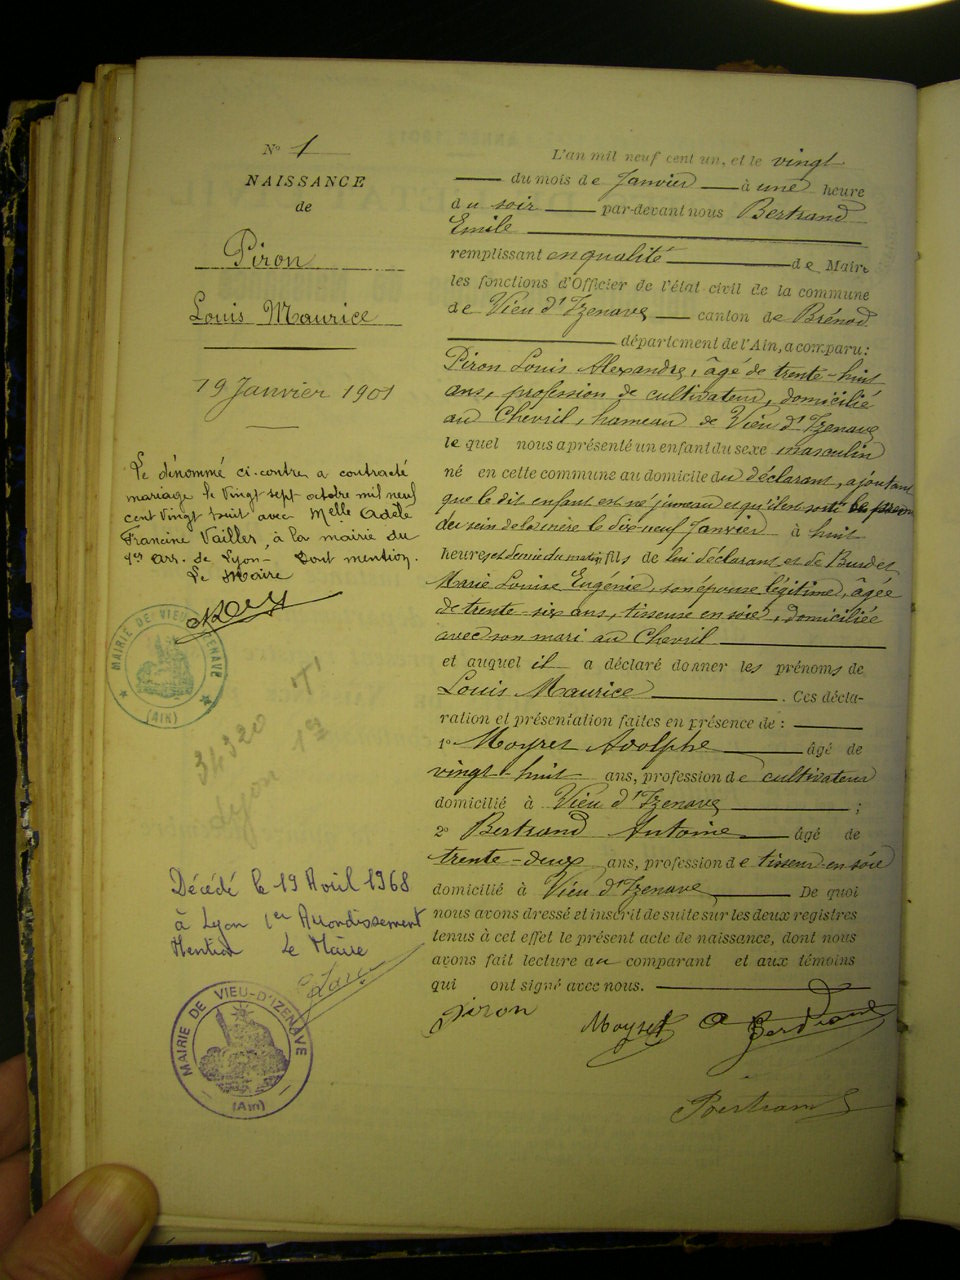 N° 1
NAISSANCE
de
Piron
Louis Maurice
19 Janvier 1901
Le dénommé ci-contre a contracté
mariage le vingt sept octobre mil neuf
cent vingt huit avec Melle Adèle
Francine Vailler, à la mairie du
1er arr. de Lyon - Dont mention.
Le Maire
MAIRIE DE VIEU D'IZENAVE
(AIN)
34320
Lyon 1er
Décédé le 19 Avril 1968
à Lyon 1er Arrondissement
Mention Le Maire
MAIRIE DE VIEU-D'IZENAVE
(Ain)
L'an mil neuf cent un, et le vingt
du mois de Janvier à une heure
du soir par-devant nous Bertrand
Emile
remplissant en qualité de Maire
les fonctions d'Officier de l'état civil de la commune
de Vieu d'Izenave canton de Brénod
département de l'Ain, a comparu :
Piron Louis Alexandre, âgé de trente-huit
ans, profession de cultivateur, domicilié
au Chevril, hameau de Vieu d'Izenave
le quel nous a présenté un enfant du sexe masculin
né en cette commune au domicile du déclarant, ajoutant
que le dit enfant est né jumeau et qu'il est sorti le
du sein de la mère le dix-neuf Janvier à huit
heures et demie du matin, fils de lui déclarant et de Burdet
Marie Louise Eugénie, son épouse légitime, âgée
de trente-six ans, tisseuse en soie, domiciliée
avec son mari au Chevril
et auquel il a déclaré donner les prénoms de
Louis Maurice . Ces décla-
ration et présentation faites en présence de :
1° Moyret Adolphe âgé de
vingt-huit ans, profession de cultivateur
domicilié à Vieu d'Izenave ;
2° Bertrand Antoine âgé de
trente-deux ans, profession de tisseur en soie
domicilié à Vieu d'Izenave De quoi
nous avons dressé et inscrit de suite sur les deux registres
tenus à cet effet le présent acte de naissance, dont nous
avons fait lecture au comparant et aux témoins
qui ont signé avec nous.
Piron Moyret A Bertrand
Bertrand